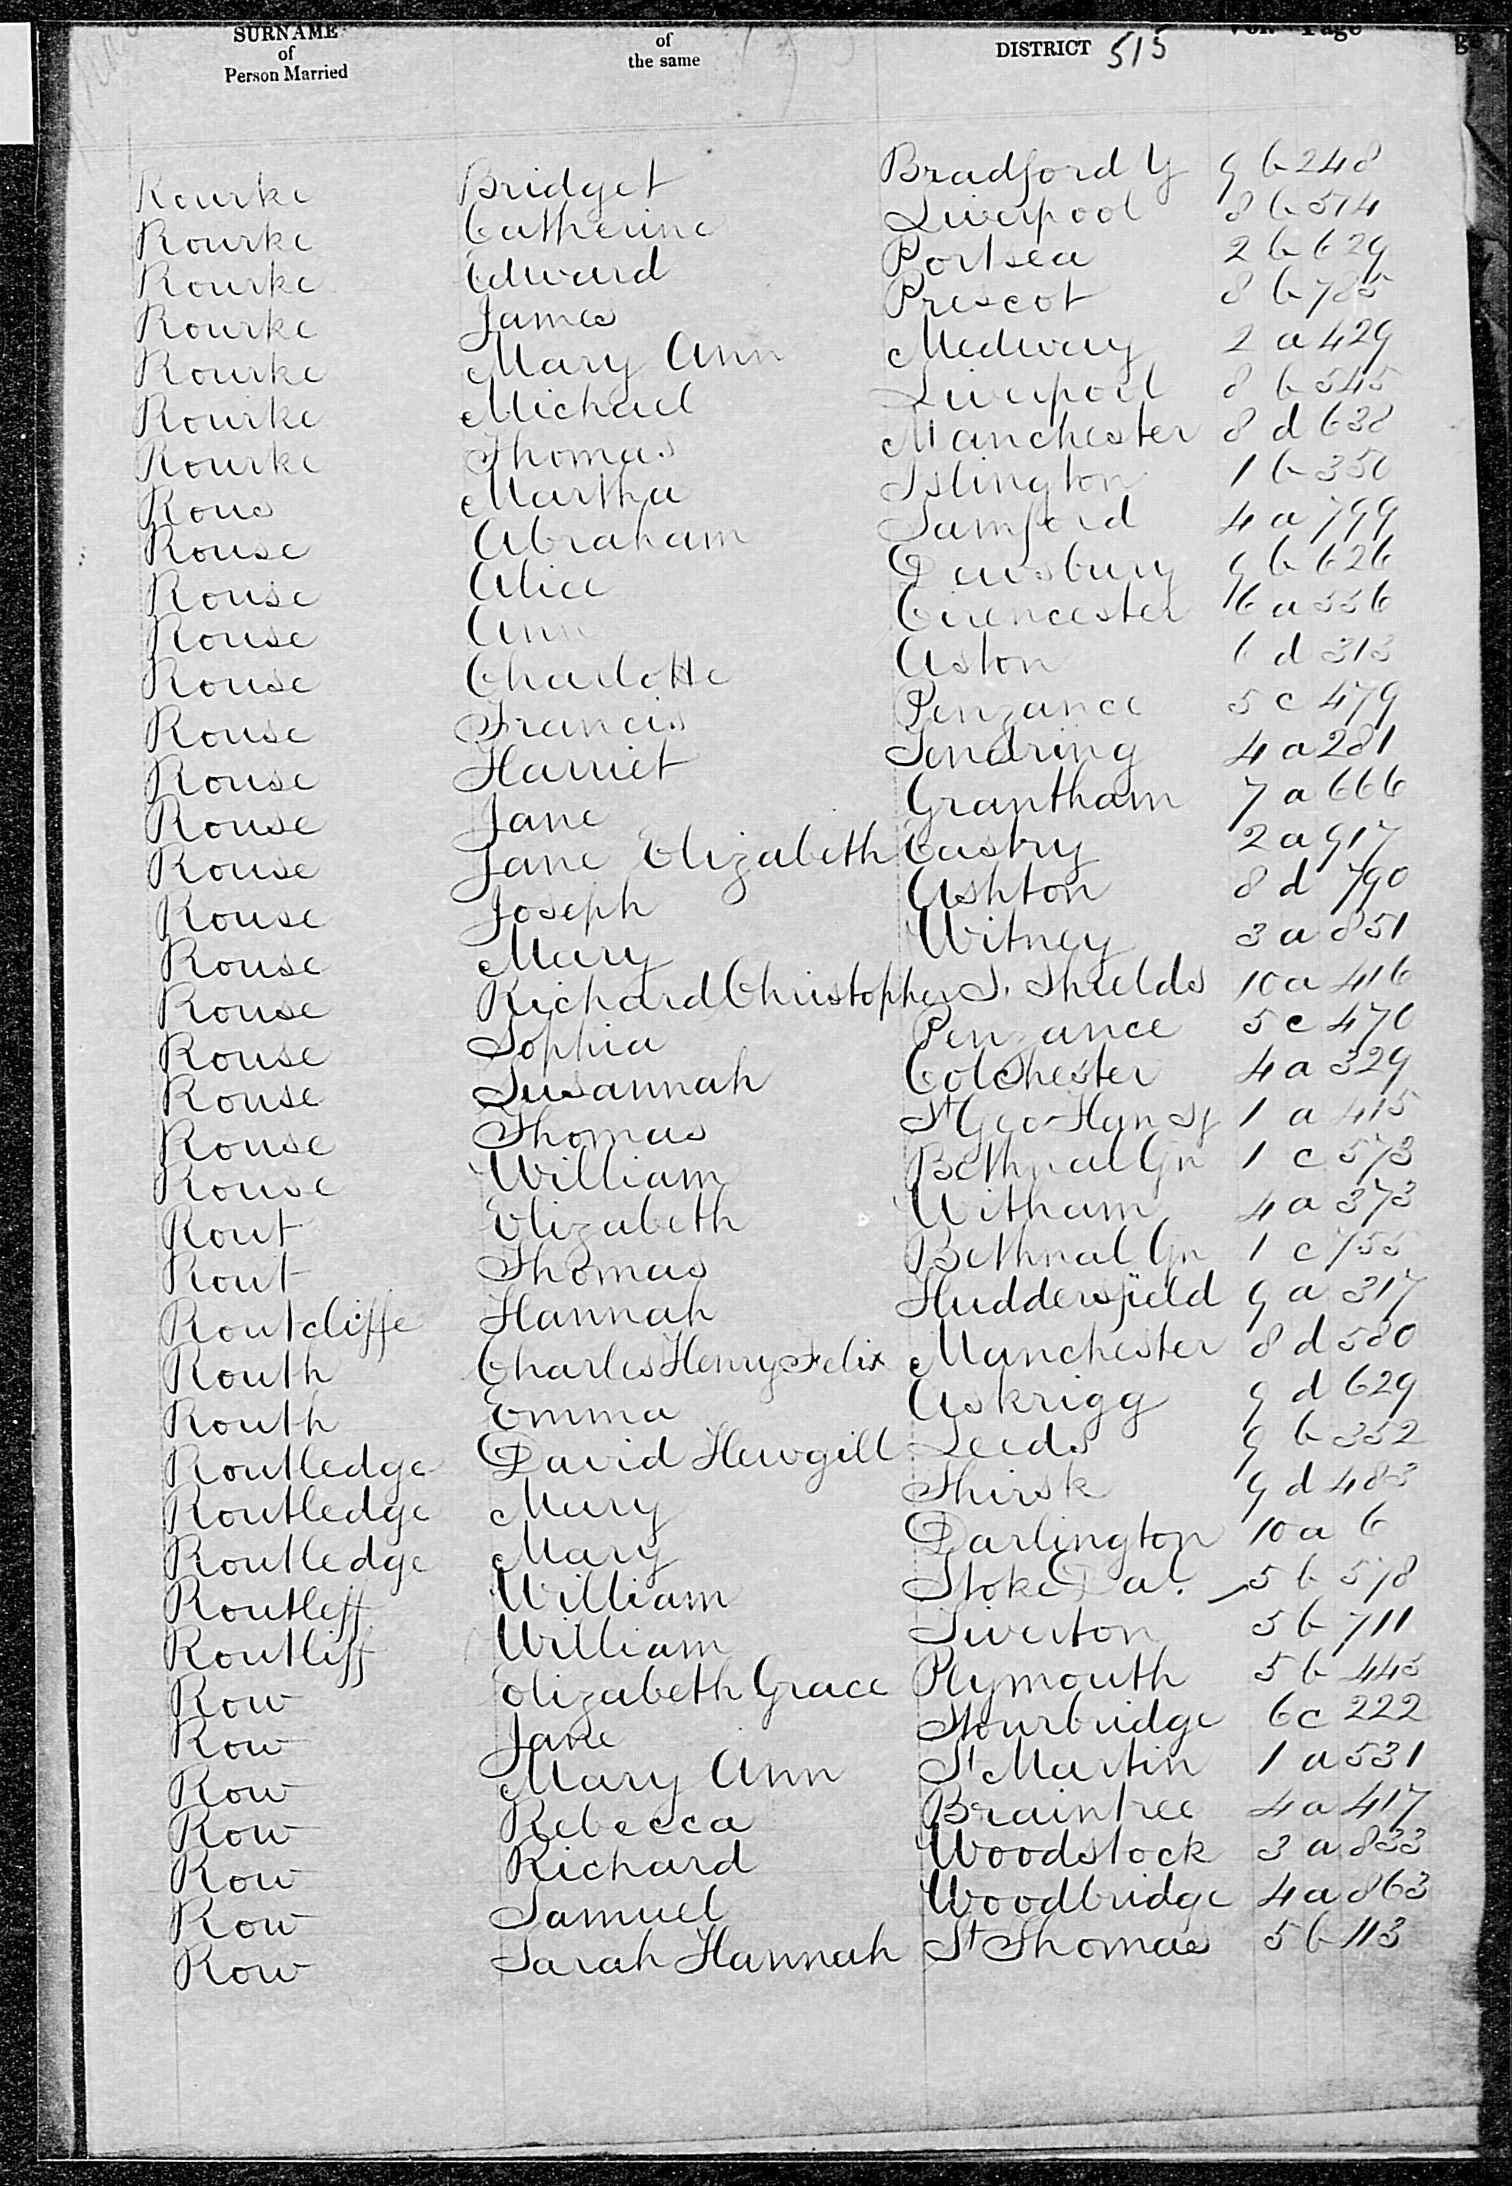 SURNAME of the same DISTRICT 515 Vol. Page
of
Person Married
Rourke Bridget Bradford Y 9 b 248
Rourke Catherine Liverpool 8 b 314
Rourke Edward Portsea 2 b 629
Rourke James Prescot 8 b 785
Rourke Mary Ann Medway 2 a 429
Rourke Michael Liverpool 8 b 545
Rourke Thomas Manchester 8 d 638
Rous Martha Islington 1 b 350
Rouse Abraham Samford 4 a 799
Rouse Alice Dewsbury 9 b 626
Rouse Ann Cirencester 6 a 336
Rouse Charlotte Aston 6 d 313
Rouse Francis Penzance 5 c 479
Rouse Harriet Tendring 4 a 281
Rouse Jane Grantham 7 a 666
Rouse Jane Elizabeth Eastry 2 a 917
Rouse Joseph Ashton 8 d 790
Rouse Mary Witney 3 a 851
Rouse Richard Christopher S. Shields 10 a 416
Rouse Sophia Penzance 5 c 470
Rouse Susannah Colchester 4 a 329
Rouse Thomas St Geo Han Sq 1 a 415
Rouse William Bethnal Gn 1 c 573
Rout Elizabeth Witham 4 a 373
Rout Thomas Bethnal Gn 1 c 755
Routcliffe Hannah Huddersfield 9 a 317
Routh Charles Henry Felix Manchester 8 d 580
Routh Emma Askrigg 9 d 629
Routledge David Hewgill Leeds 9 b 352
Routledge Mary Thirsk 9 d 483
Routledge Mary Darlington 10 a 6
Routleff William Stoke Da. 5 b 578
Routliff William Tiverton 5 b 711
Row Elizabeth Grace Plymouth 5 b 445
Row Jane Stourbridge 6c 222
Row Mary Ann St Martin 1 a 531
Row Rebecca Braintree 4 a 417
Row Richard Woodstock 3 a 833
Row Samuel Woodbridge 4 a 863
Row Sarah Hannah St Thomas 5 b 113